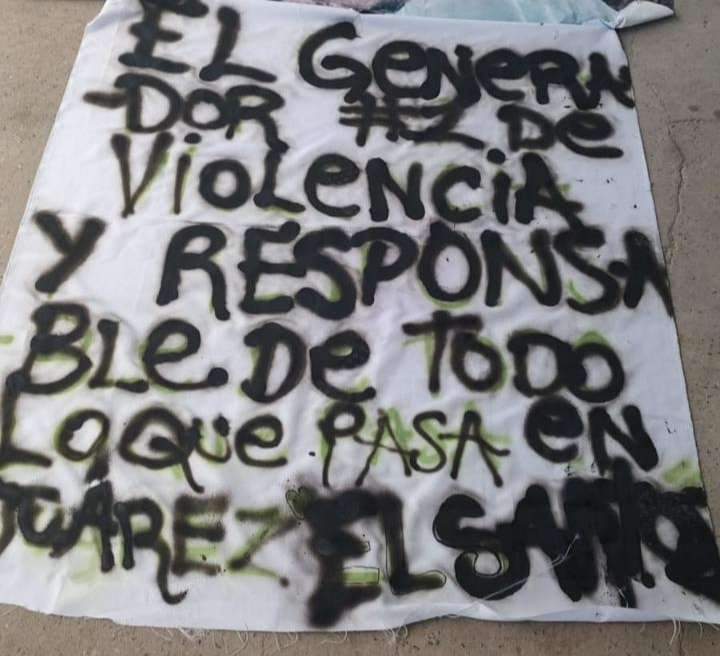 EL GeNeRA
-DOR #2 De
VioLeNCiA
Y RESPONSA
BLe De ToDO
LO QUe PASA eN
JUÁREZ EL SANTO